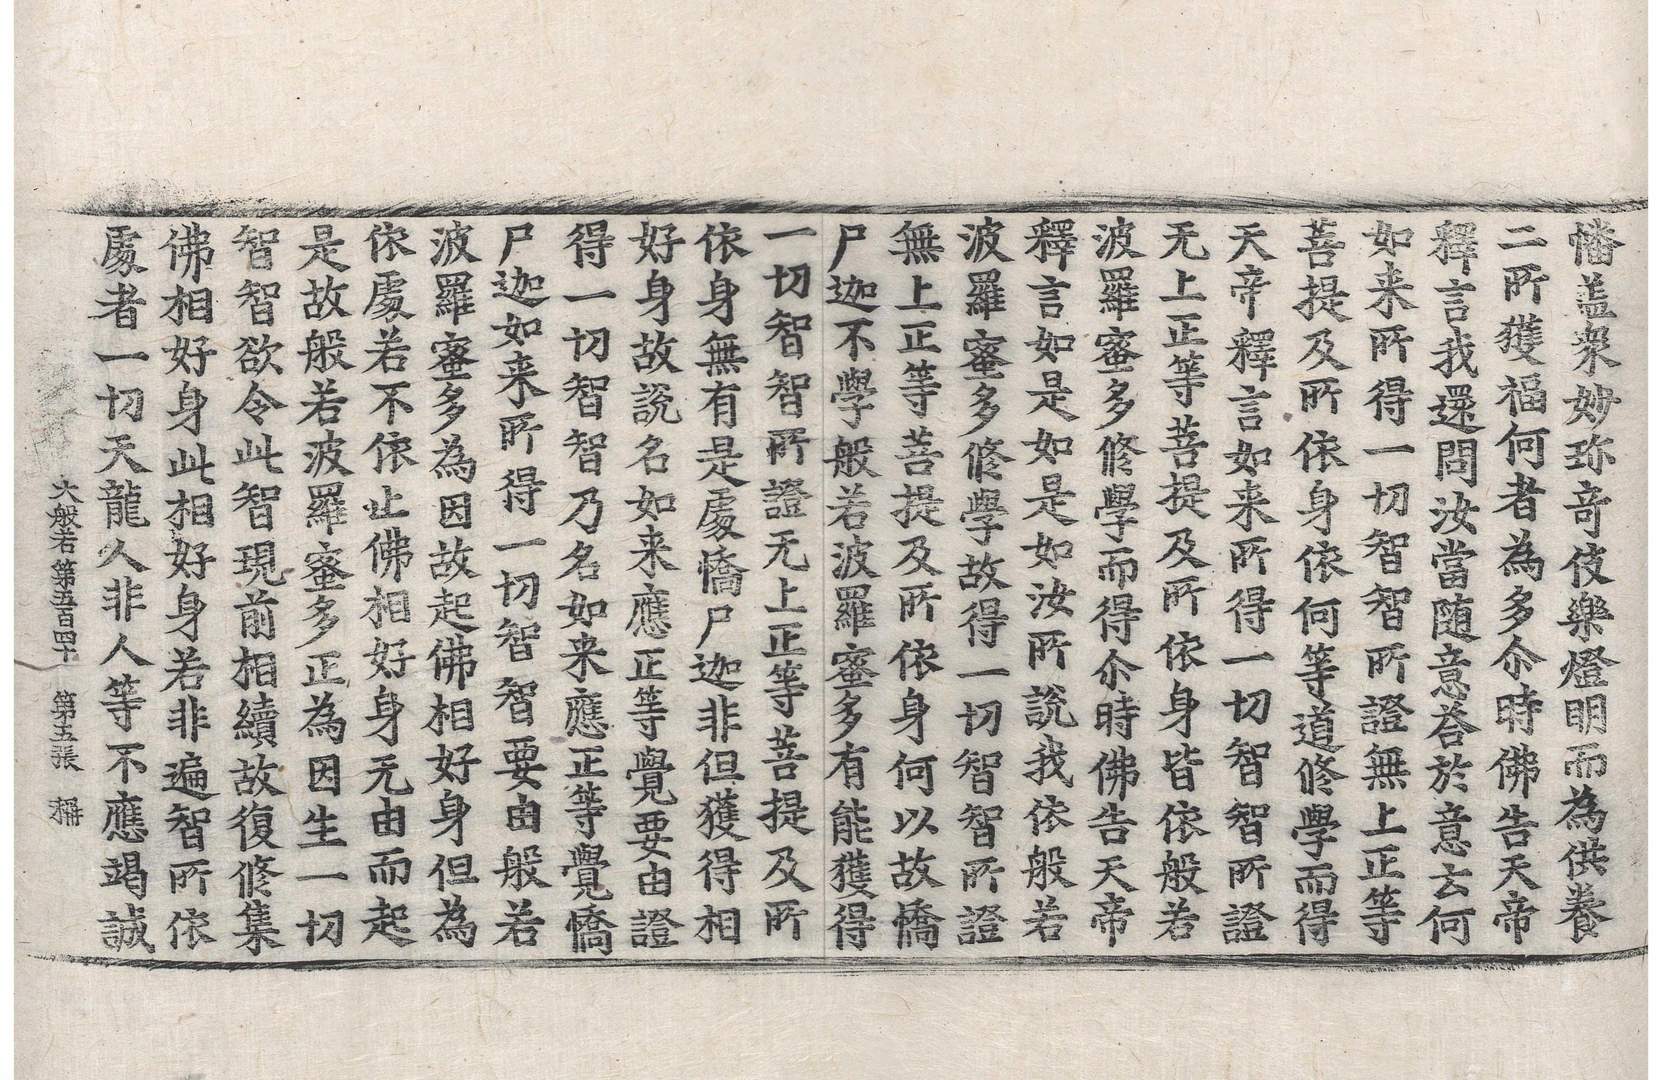 幡盖衆妙珎奇伎樂燈明而為供養
二所獲福何者為多尒時佛告天帝
釋言我還問汝當随意荅於意云何
如来所得一切智智所證無上正等
菩提及所依身依何等道修學而得
天帝釋言如来所得一切智智所證
无上正等菩提及所依身皆依般若
波羅蜜多修學而得尒時佛告天帝
釋言如是如是如汝所說我依般若
波羅蜜多修學故得一切智智所證
無上正等菩提及所依身何以故憍
尸迦不學般若波羅蜜多有能獲得
一切智智所證无上正等菩提及所
依身無有是處憍尸迦非但獲得相
好身故說名如来應正等覺要由證
得一切智智乃名如来應正等覺憍
尸迦如来所得一切智智要由般若
波羅蜜多為因故起佛相好身但為
依處若不依止佛相好身无由而起
是故般若波羅蜜多正為因生一切
智智欲令此智現前相續故復修集
佛相好身此相好身若非遍智所依
處者一切天龍人非人等不應竭誠
大般若第五百四十　第五張　稱